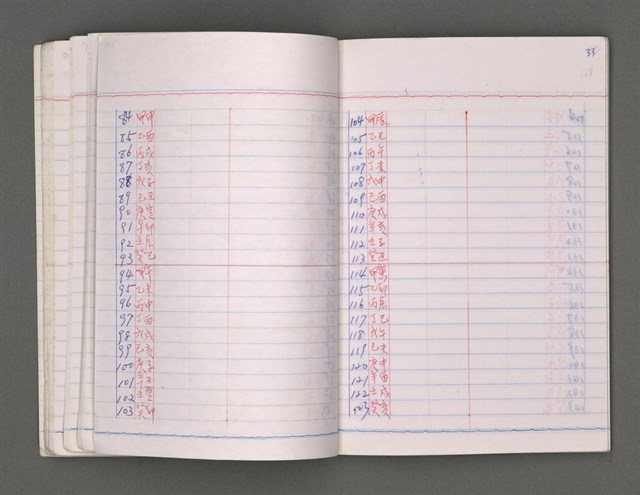 84 甲申
85 乙酉
86 丙戌
87 丁亥
88 戊子
89 己丑
90 庚寅
91 辛卯
92 壬辰
93 癸巳
94 甲午
95 乙未
96 丙申
97 丁酉
98 戊戌
99 己亥
100 庚子
101 辛丑
102 壬寅
103 癸卯
33
104 甲辰
105 乙巳
106 丙午
107 丁未
108 戊申
109 己酉
110 庚戌
111 辛亥
112 壬子
113 癸丑
114 甲寅
115 乙卯
116 丙辰
117 丁巳
118 戊午
119 己未
120 庚申
121 辛酉
122 壬戌
123 癸亥